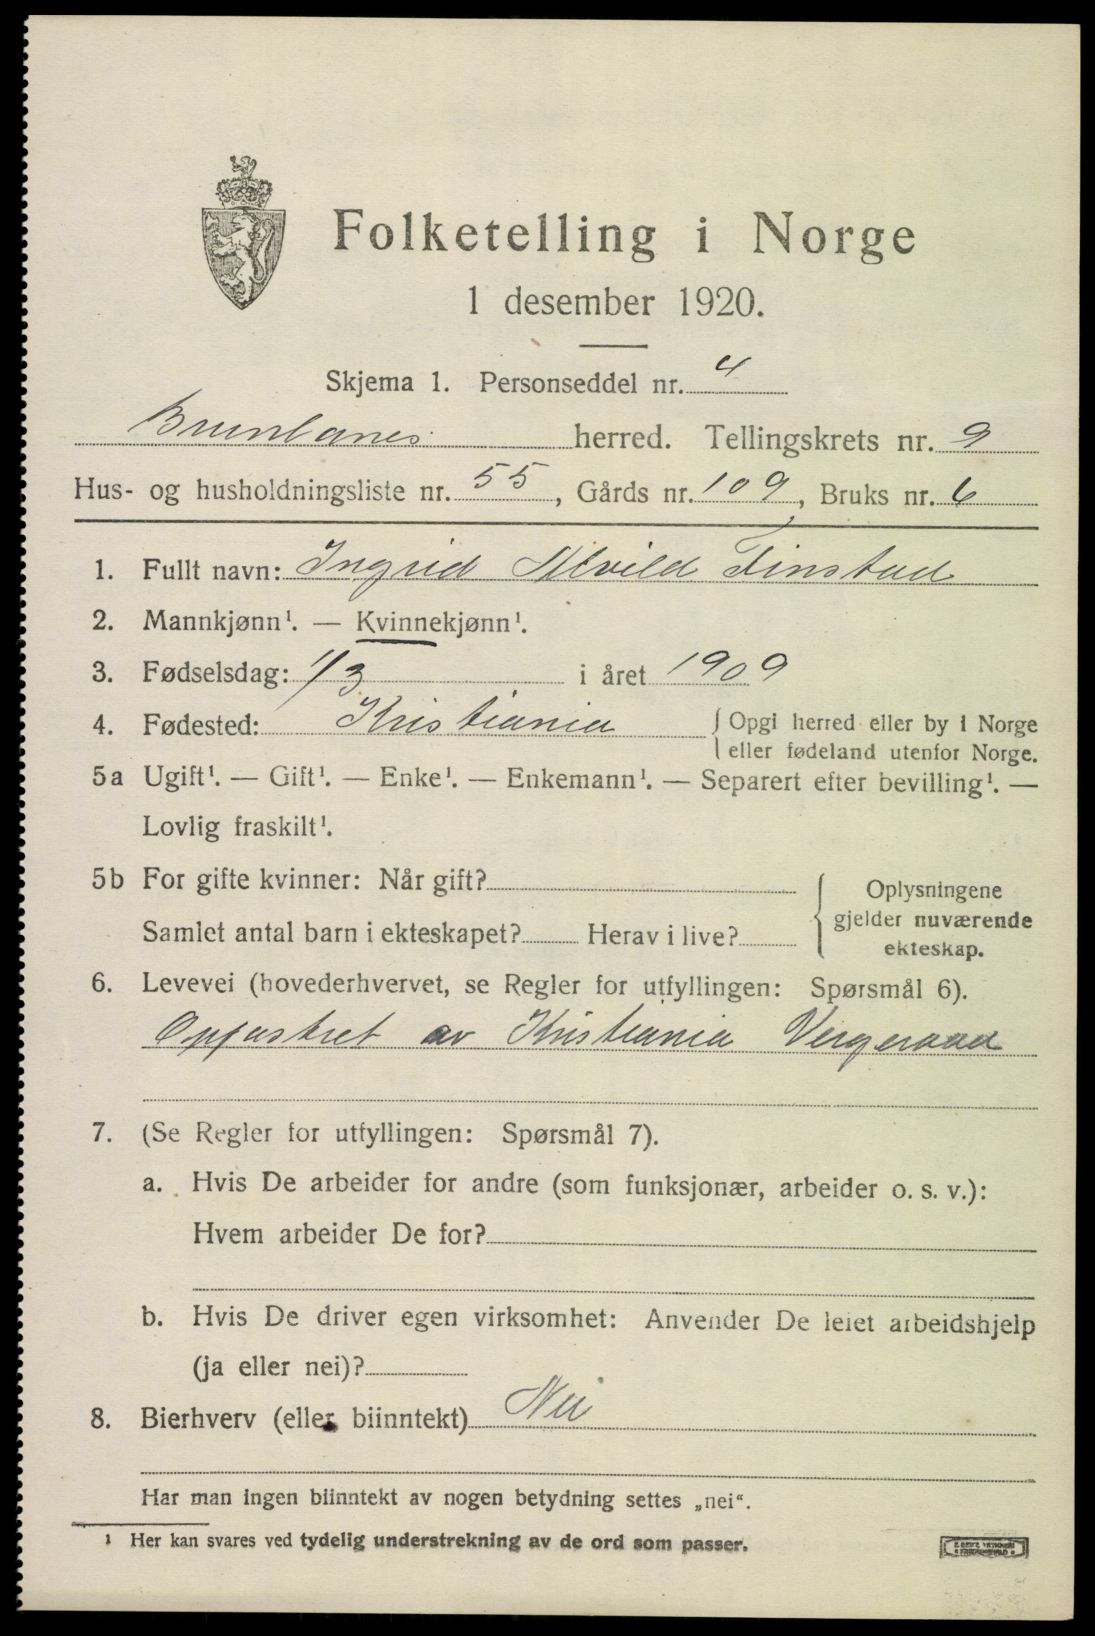 Folketelling i Norge
1 desember 1920.
Skjema 1. Personseddel nr. 4
Brunlanes herred. Tellingskrets nr. 9
Hus- og husholdningsliste nr. 55, Gårds nr. 109, Bruks nr. 6
1. Fullt navn: Ingrid Alvild Finstad
2. Mannkjønn¹. — Kvinnekjønn¹.
3. Fødselsdag: 1/3 i året 1909
4. Fødested: Kristiania { Opgi herred eller by i Norge
eller fødeland utenfor Norge.
5a Ugift¹. — Gift¹. — Enke¹. — Enkemann¹. — Separert efter bevilling¹. —
Lovlig fraskilt¹.
5b For gifte kvinner: Når gift? Oplysningene
Samlet antal barn i ekteskapet? Herav i live? gjelder nuværende
ekteskap.
6. Levevei (hovederhvervet, se Regler for utfyllingen: Spørsmål 6).
Opfostret av Kristiania Vergeraad
7. (Se Regler for utfyllingen: Spørsmål 7).
a. Hvis De arbeider for andre (som funksjonær, arbeider o. s. v.):
Hvem arbeider De for?
b. Hvis De driver egen virksomhet: Anvender De leiet arbeidshjelp
(ja eller nei)?
8. Bierhverv (eller biinntekt) Nei
Har man ingen biinntekt av nogen betydning settes „nei“.
¹ Her kan svares ved tydelig understrekning av de ord som passer.